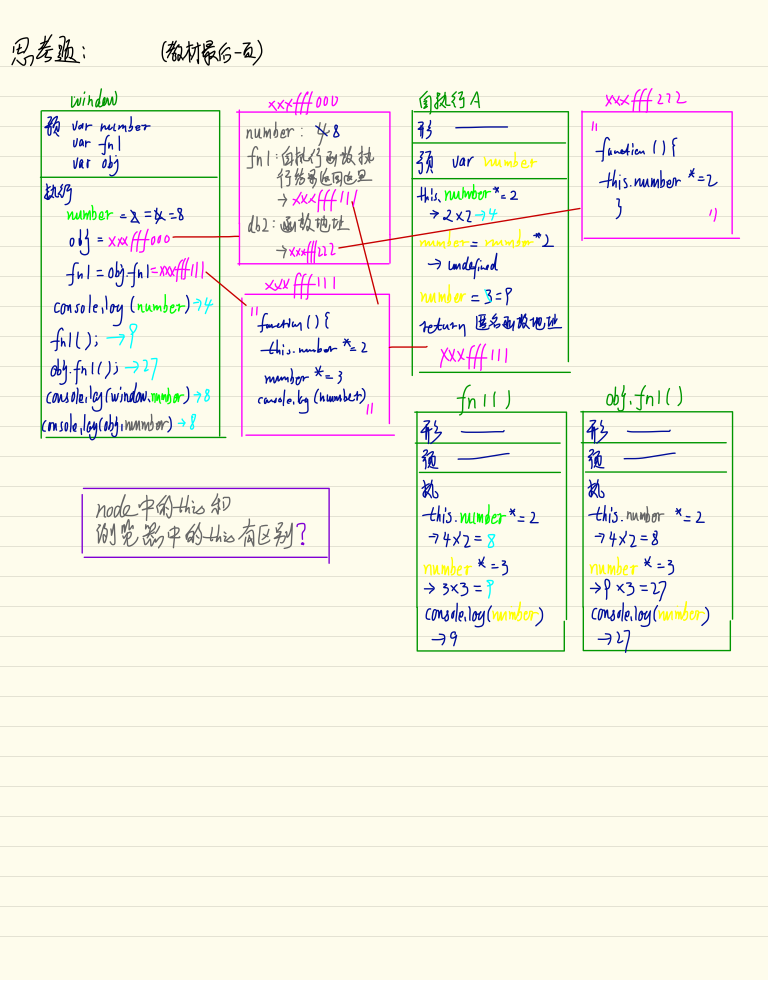 思考题: (教材最后一页)
window
预 var number
var fn1
var obj
执行
number = 2 = 4 = 8
obj = xxxfff000
fn1 = obj.fn1 = xxxfff111
console.log (number) → 4
fn1(); → 9
obj.fn1(); → 27
console.log(window.number) → 8
console.log(obj.number) → 8
xxxfff000
number: 4 8
fn1: 自执行函数执
行结果返回这里
→ xxxfff111
db2: 函数地址
→ xxxfff222
xxxfff111
"
function () {
this.number *= 2
number *= 3
console.log (number)
"
自执行A
形 ——
预 var number
this.number *= 2
→ 2×2 → 4
number = number * 2
→ undefined
number = 3 = 9
return 匿名函数地址
xxxfff111
xxxfff222
"
function () {
this.number *= 2
}
"
fn1()
形 ——
预 ——
执
this.number *= 2
→ 4×2 = 8
number *= 3
→ 3×3 = 9
console.log(number)
→ 9
obj.fn1()
形 ——
预 ——
执
this.number *= 2
→ 4×2 = 8
number *= 3
→ 9×3 = 27
console.log(number)
→ 27
node中的this和
浏览器中的this有区别?